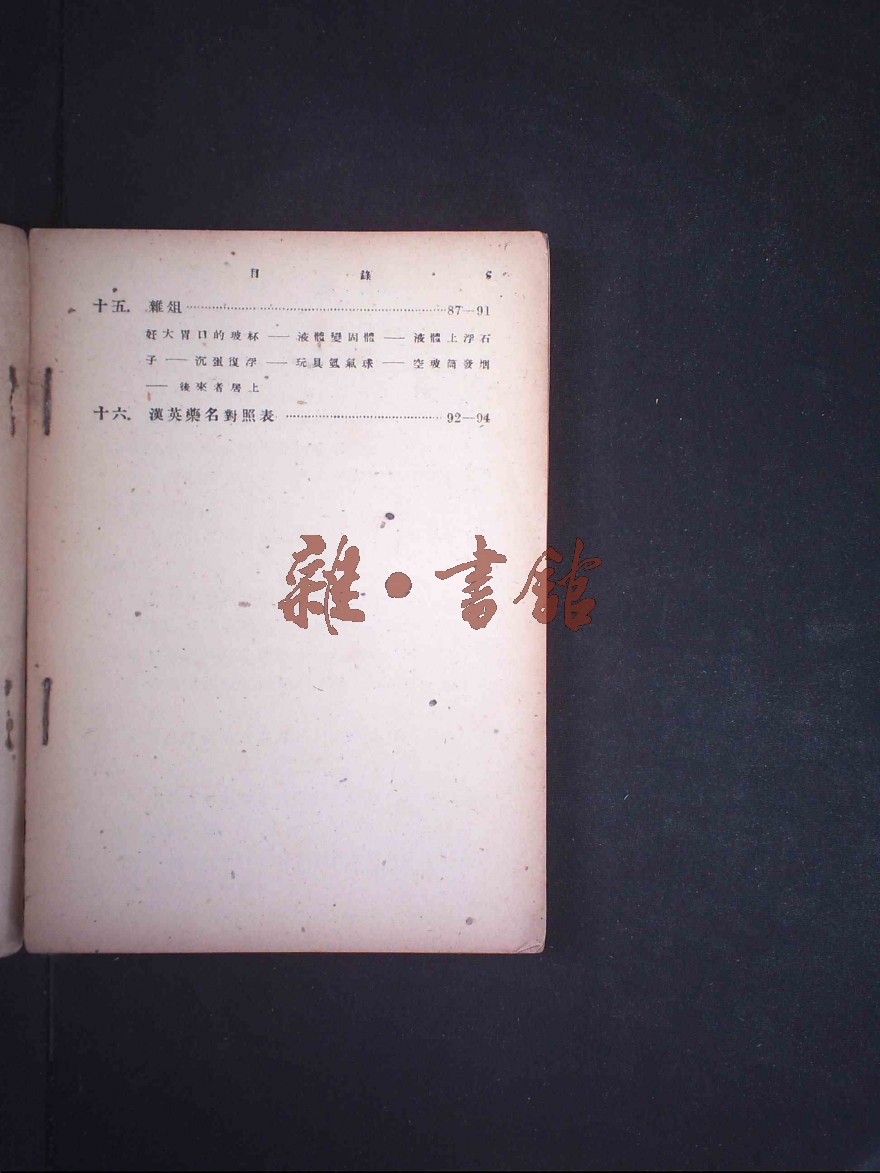 目 錄
十五. 雜俎 87—91
好大胃口的玻杯 —— 液體變固體 —— 液體上浮石
子 —— 沉蛋復浮 —— 玩具氫氣球 —— 空玻筒發烟
—— 後來者居上
十六. 漢英藥名對照表 92—94
雜·書館